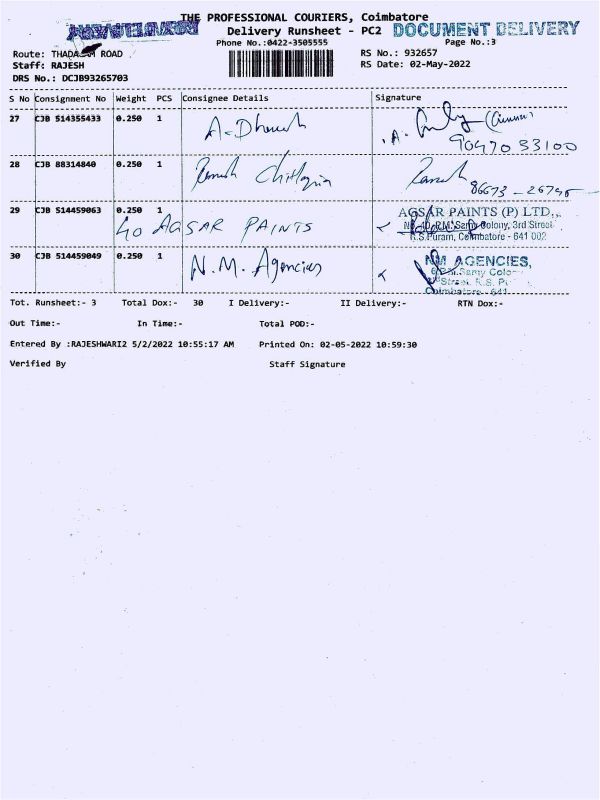 THE PROFESSIONAL COURIERS, Coimbatore
Delivery Runsheet - PC2
DOCUMENT DELIVERY
Phone No.:0422-3505555
Page No.:3
Route: THADAGAM ROAD
RS No.: 932657
Staff: RAJESH
RS Date: 02-May-2022
DRS No.: DCJB93265703
S No Consignment No Weight PCS Consignee Details Signature
27 CJB 514355433 0.250 1 A-Dhanush
90470 53100
28 CJB 88314840 0.250 1 Ramesh
29 CJB 514459063 0.250 1 AGSAR PAINTS (P) LTD.,
40 AGSAR PAINTS No. 40, P.M. Samy Colony, 3rd Street
R.S.Puram, Coimbatore - 641 002
30 CJB 514459049 0.250 1 N.M. Agencies NM AGENCIES,
P.M.Samy Colo
Street, R.S. Pu
Coimbatore - 641
Tot. Runsheet:- 3 Total Dox:- 30 I Delivery:- II Delivery:- RTN Dox:-
Out Time:- In Time:- Total POD:-
Entered By :RAJESHWARI2 5/2/2022 10:55:17 AM Printed On: 02-05-2022 10:59:30
Verified By Staff Signature